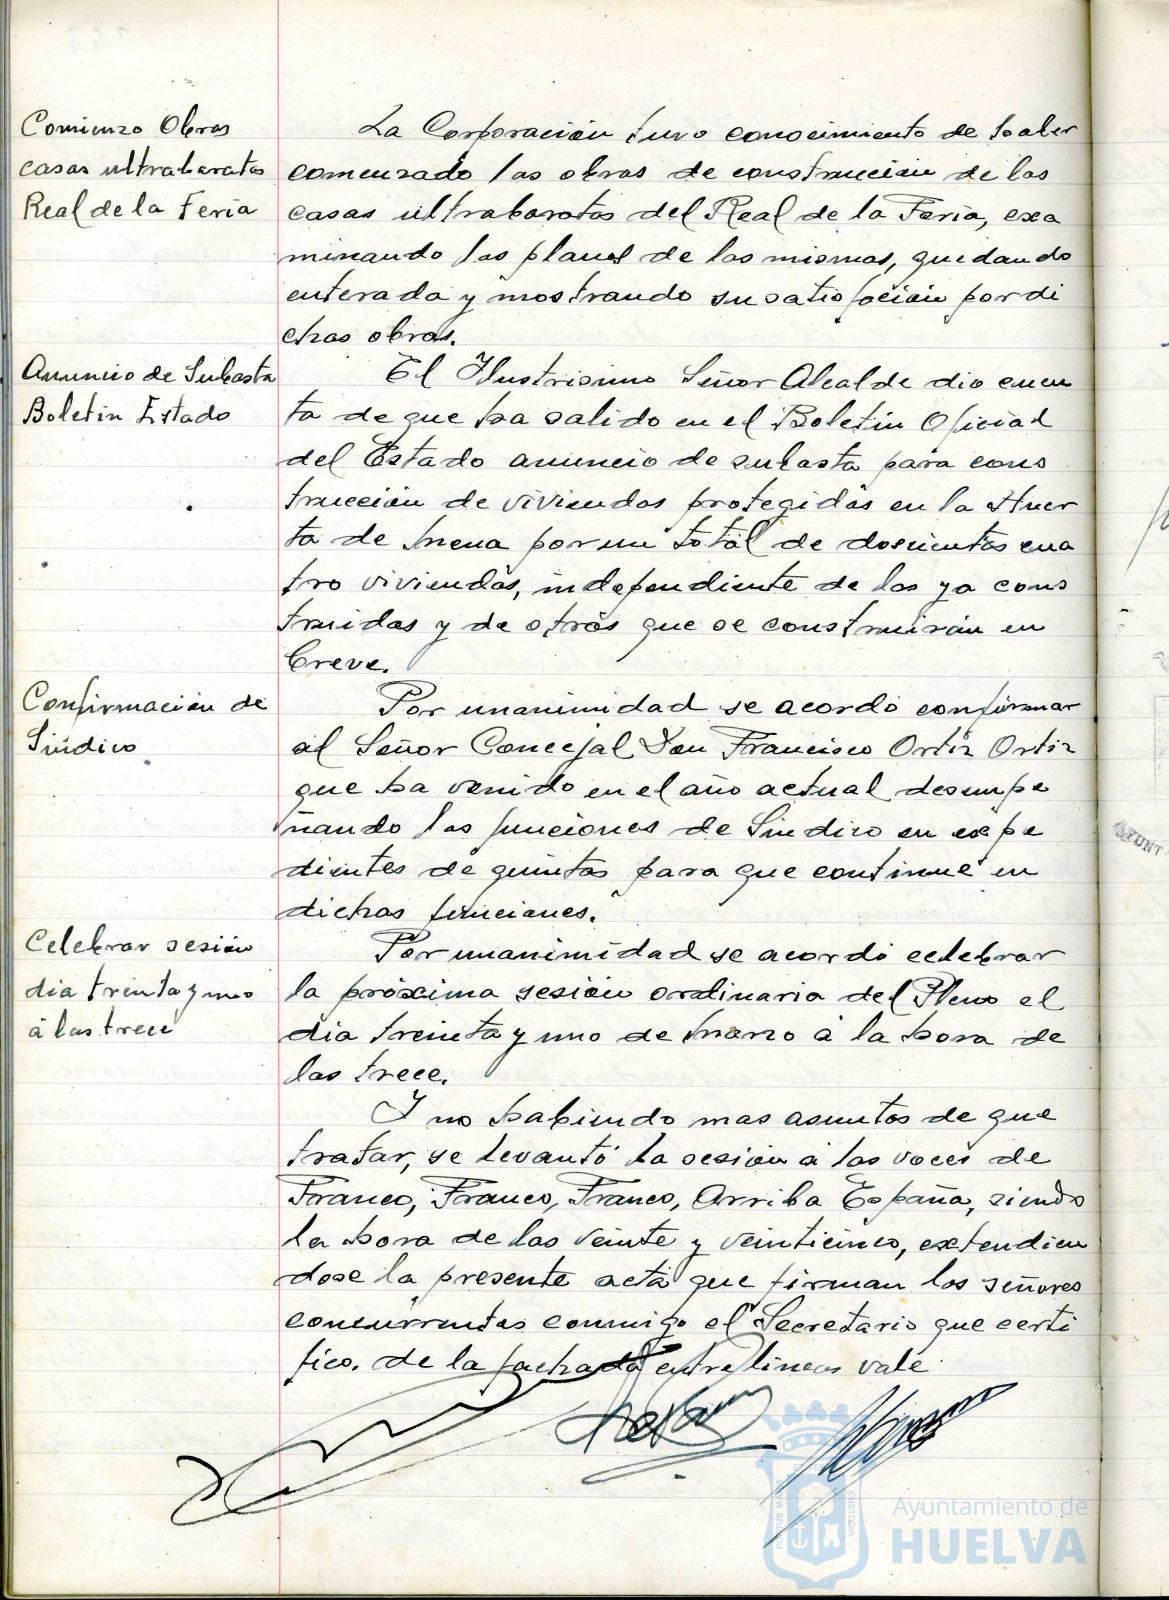 Comienzo Obras
casas ultrabaratas
Real de la Feria
La Corporación tuvo conocimiento de haber
comenzado las obras de construcción de las
casas ultrabaratas del Real de la Feria, exa
minando los planos de las mismas, quedando
enterada y mostrando su satisfacción por di
chas obras.
Anuncio de Subasta
Boletín Estado
El Ilustrisimo Señor Alcalde dio cuen
ta de que ha salido en el Boletín Oficial
del Estado anuncio de subasta para cons
trucción de viviendas protegidas en la Huer
ta de Mena por un total de doscientas cua
tro viviendas, independiente de las ya cons
truidas y de otras que se construirán en
breve.
Confirmación de
Síndico
Por unanimidad se acordó confirmar
al Señor Concejal Don Francisco Ortiz Ortiz
que ha venido en el año actual desempe
ñando las funciones de Síndico en expe
dientes de quintas para que continue en
dichas funciones.
Celebrar sesión
dia treinta y uno
á las trece
Por unanimidad se acordó celebrar
la próxima sesión ordinaria del Pleno el
dia treinta y uno de Marzo á la hora de
las trece.
Y no habiendo mas asuntos de que
tratar, se levantó la sesión á las voces de
Franco, Franco, Franco, Arriba España, siendo
la hora de las veinte y veinticinco, extendien
dose la presente acta que firman los señores
concurrentes conmigo el Secretario que certi
fico. de la fachada entre lineas vale
Ayuntamiento de
HUELVA